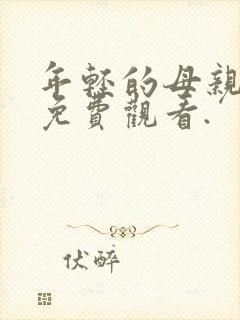 年轻的母親
免費觀看.
伏醉